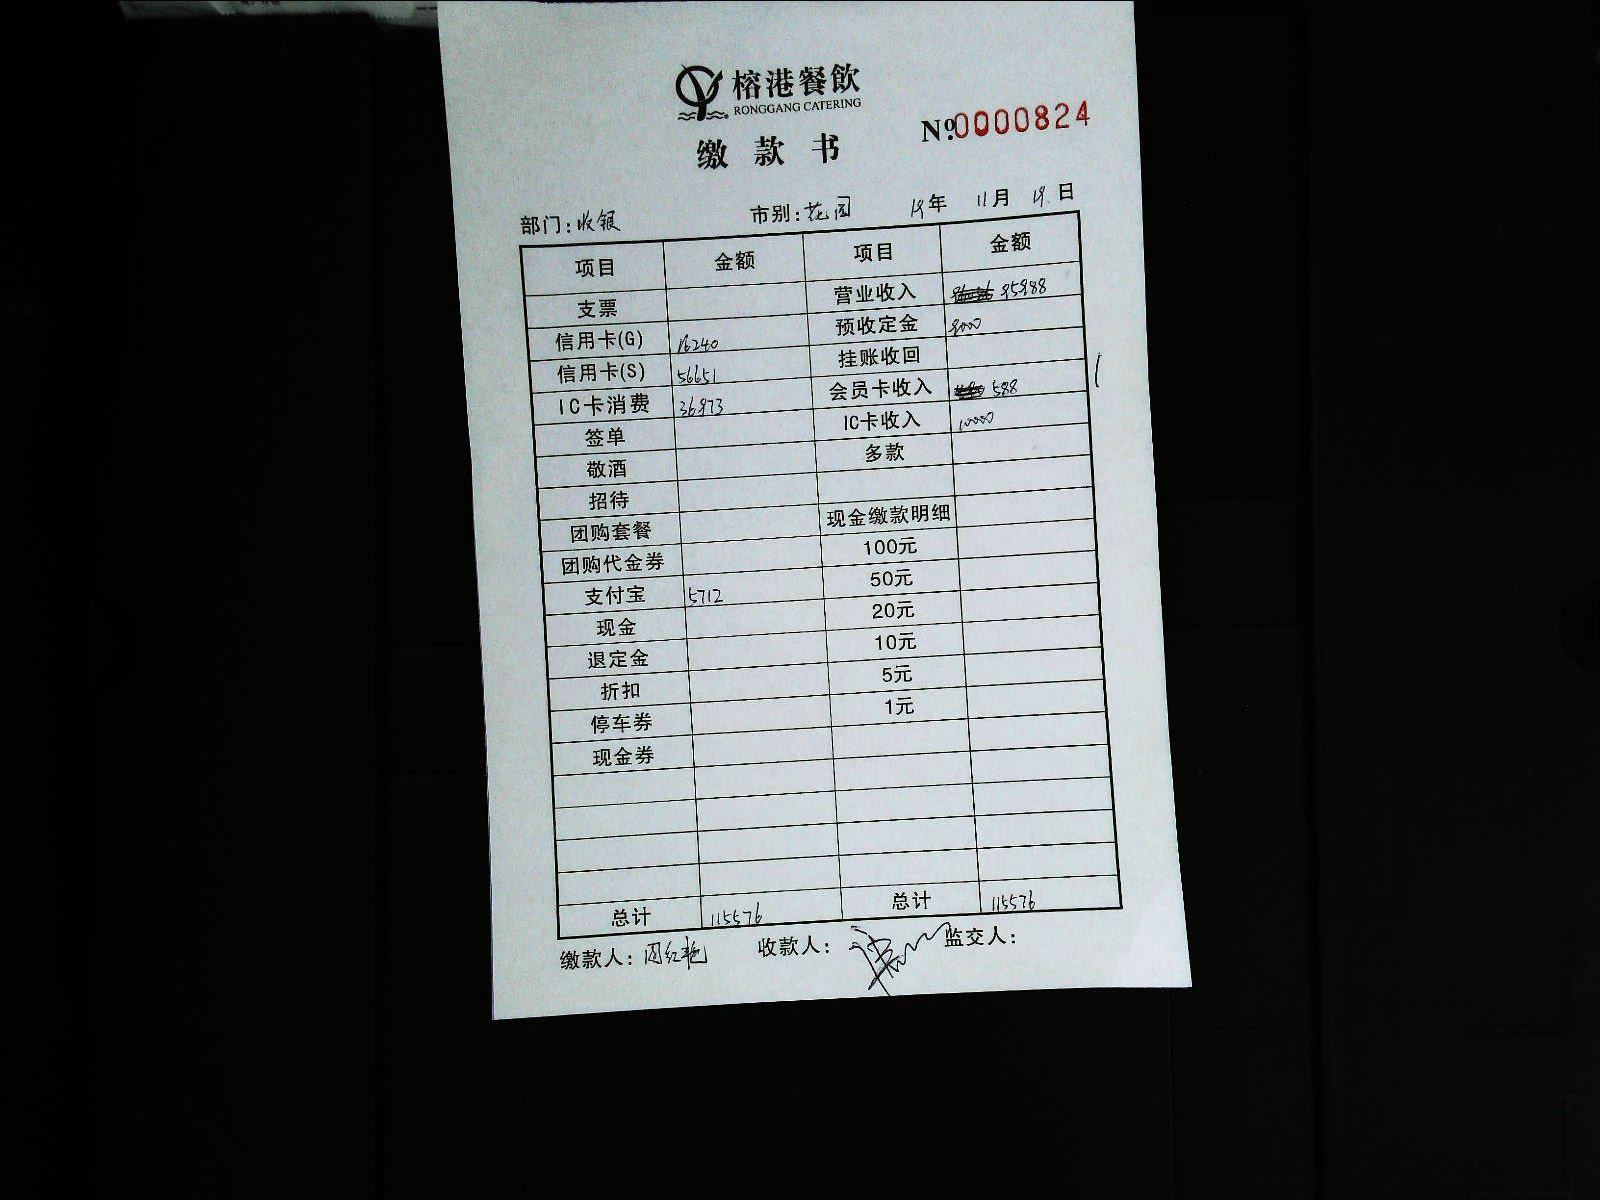 榕港餐飲
RONGGANG CATERING
缴款书
Nº0000824
部门:收银 市别:花园 19年 11月 19日
项目 金额 项目 金额
支票 营业收入 95988
信用卡(G) 16240 预收定金 9000
信用卡(S) 56651 挂账收回
IC卡消费 36973 会员卡收入 588
签单 IC卡收入 10000
敬酒 多款
招待
团购套餐 现金缴款明细
团购代金券 100元
支付宝 5712 50元
现金 20元
退定金 10元
折扣 5元
停车券 1元
现金券
总计 115576 总计 115576
缴款人:周红艳 收款人: 监交人: